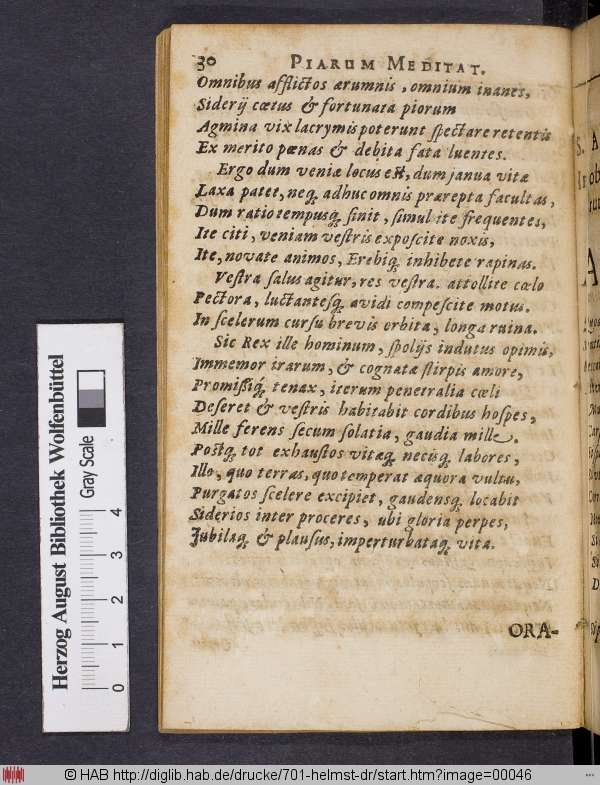 30 PIARUM MEDITAT.
Omnibus afflictos ærumnis, omnium inanes,
Siderij cœtus & fortunata piorum
Agmina vix lacrymis poterunt spectare retentis
Ex merito pœnas & debita fata luentes.
Ergo dum veniæ locus est, dum janua vitæ
Laxa patet, neq; adhuc omnis prærepta facultas,
Dum ratio tempusq; sinit, simul ite frequentes,
Ite citi, veniam vestris exposcite noxis,
Ite, novate animos, Erebiq; inhibete rapinas.
Vestra salus agitur, res vestra. attollite cœlo
Pectora, luctantesq; avidi compescite motus.
In scelerum cursu brevis orbita, longa ruina.
Sic Rex ille hominum, spolijs indutus opimis,
Immemor irarum, & cognatæ stirpis amore,
Promissiq; tenax, iterum penetralia cœli
Deseret & vestris habitabit cordibus hospes,
Mille ferens secum solatia, gaudia mille.
Postq; tot exhaustos vitæq; necisq; labores,
Illo, quo terras, quo temperat æquora vultu,
Purgatos scelere excipiet, gaudensq; locabit
Siderios inter proceres, ubi gloria perpes,
Jubilaq; & plausus, imperturbataq; vita.
ORA-
Herzog August Bibliothek Wolfenbüttel
Gray Scale
0 1 2 3 4
© HAB http://diglib.hab.de/drucke/701-helmst-dr/start.htm?image=00046